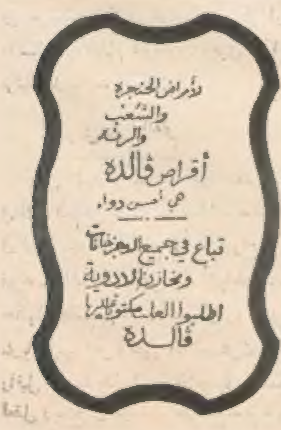 لأمراض الحنجرة
والشعب
والرئة
أقراص ڤالدة
هي أحسن دواء
تباع في جميع الاجزخانات
ومخازن الادوية
اطلبوا العلب مكتوب عليها
ڤالدة